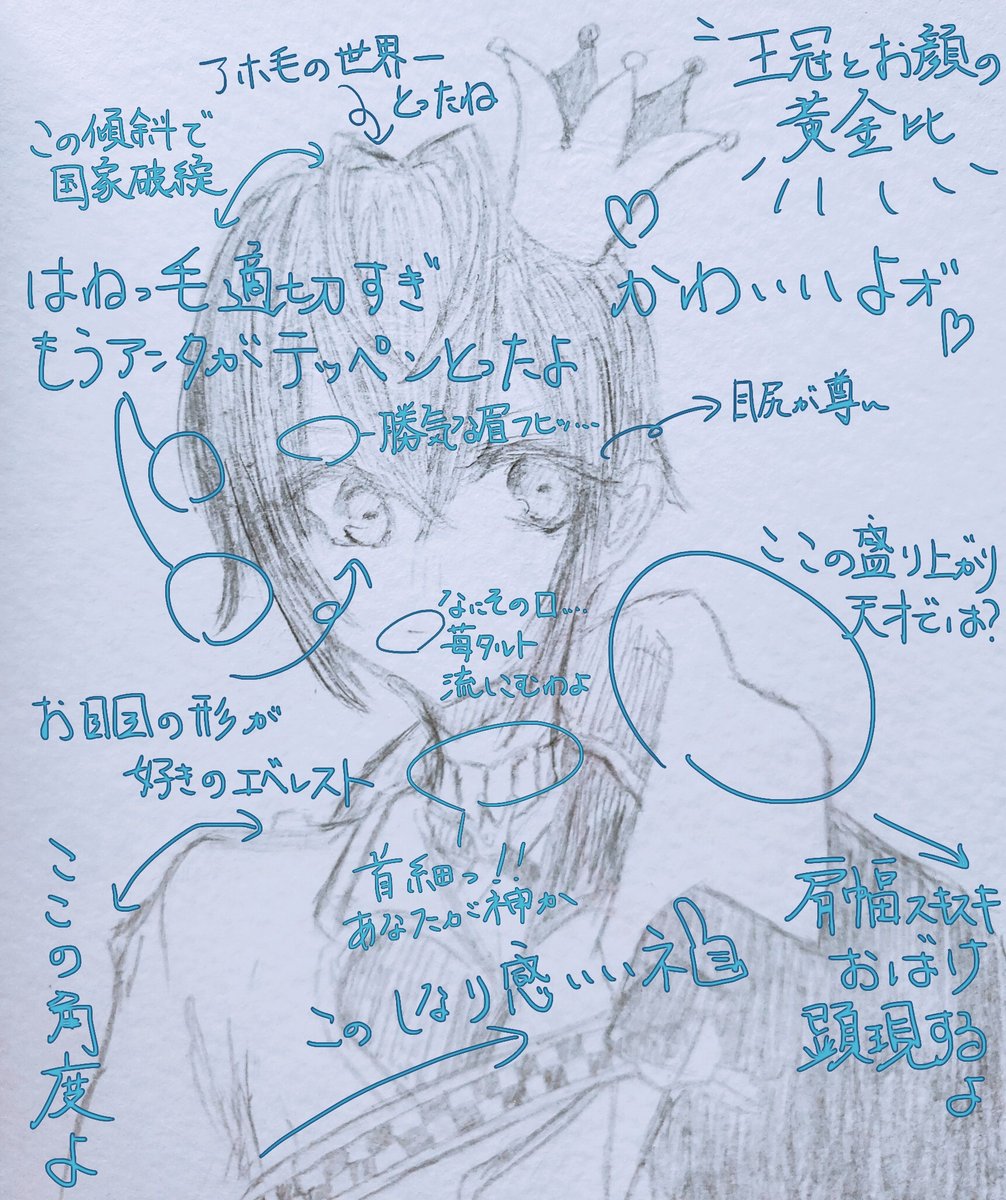 アホ毛の世界一
とったね
王冠とお顔の
黄金比
この傾斜で
国家破綻
はねっ毛適切すぎ
もうアンタがテッペンとったよ
かわいいよォ
勝気な眉フヒッ…
目尻が尊い
ここの盛り上がり
天才では?
なにその口….
苺タルト
流しこむわよ
お目目の形が
好きのエベレスト
首細っ!!
あなたが神か
肩幅スキスキ
おばけ
顕現するよ
このしなり感いいネ
ここの角度よ